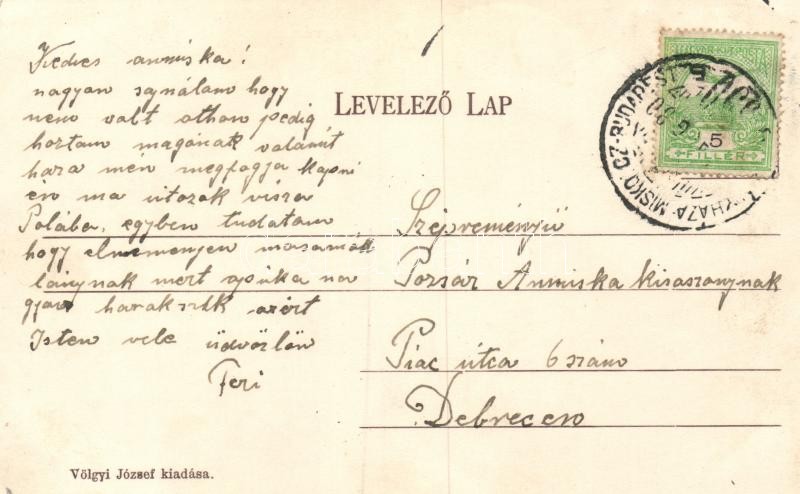 Kedves anniska!
nagyan sajnálam hogy
nem valt othon pedig
hoztam magának valamit
haza mén megfogja kapni
én ma utozok visza
Polába, egyben tudatam
hogy elmenenyen
lánynak mert apuka na
gyan harakszik azért
Isten vele üdvözlön
Feri
LEVELEZŐ LAP
MAGYAR KIR. POSTA
5
FILLÉR
MISKOLCZ-BUDAPEST
Szépreményü
Pozsár Anniska kisaszonynak
Piac útca 6 szám
Debrecen
Völgyi József kiadása.